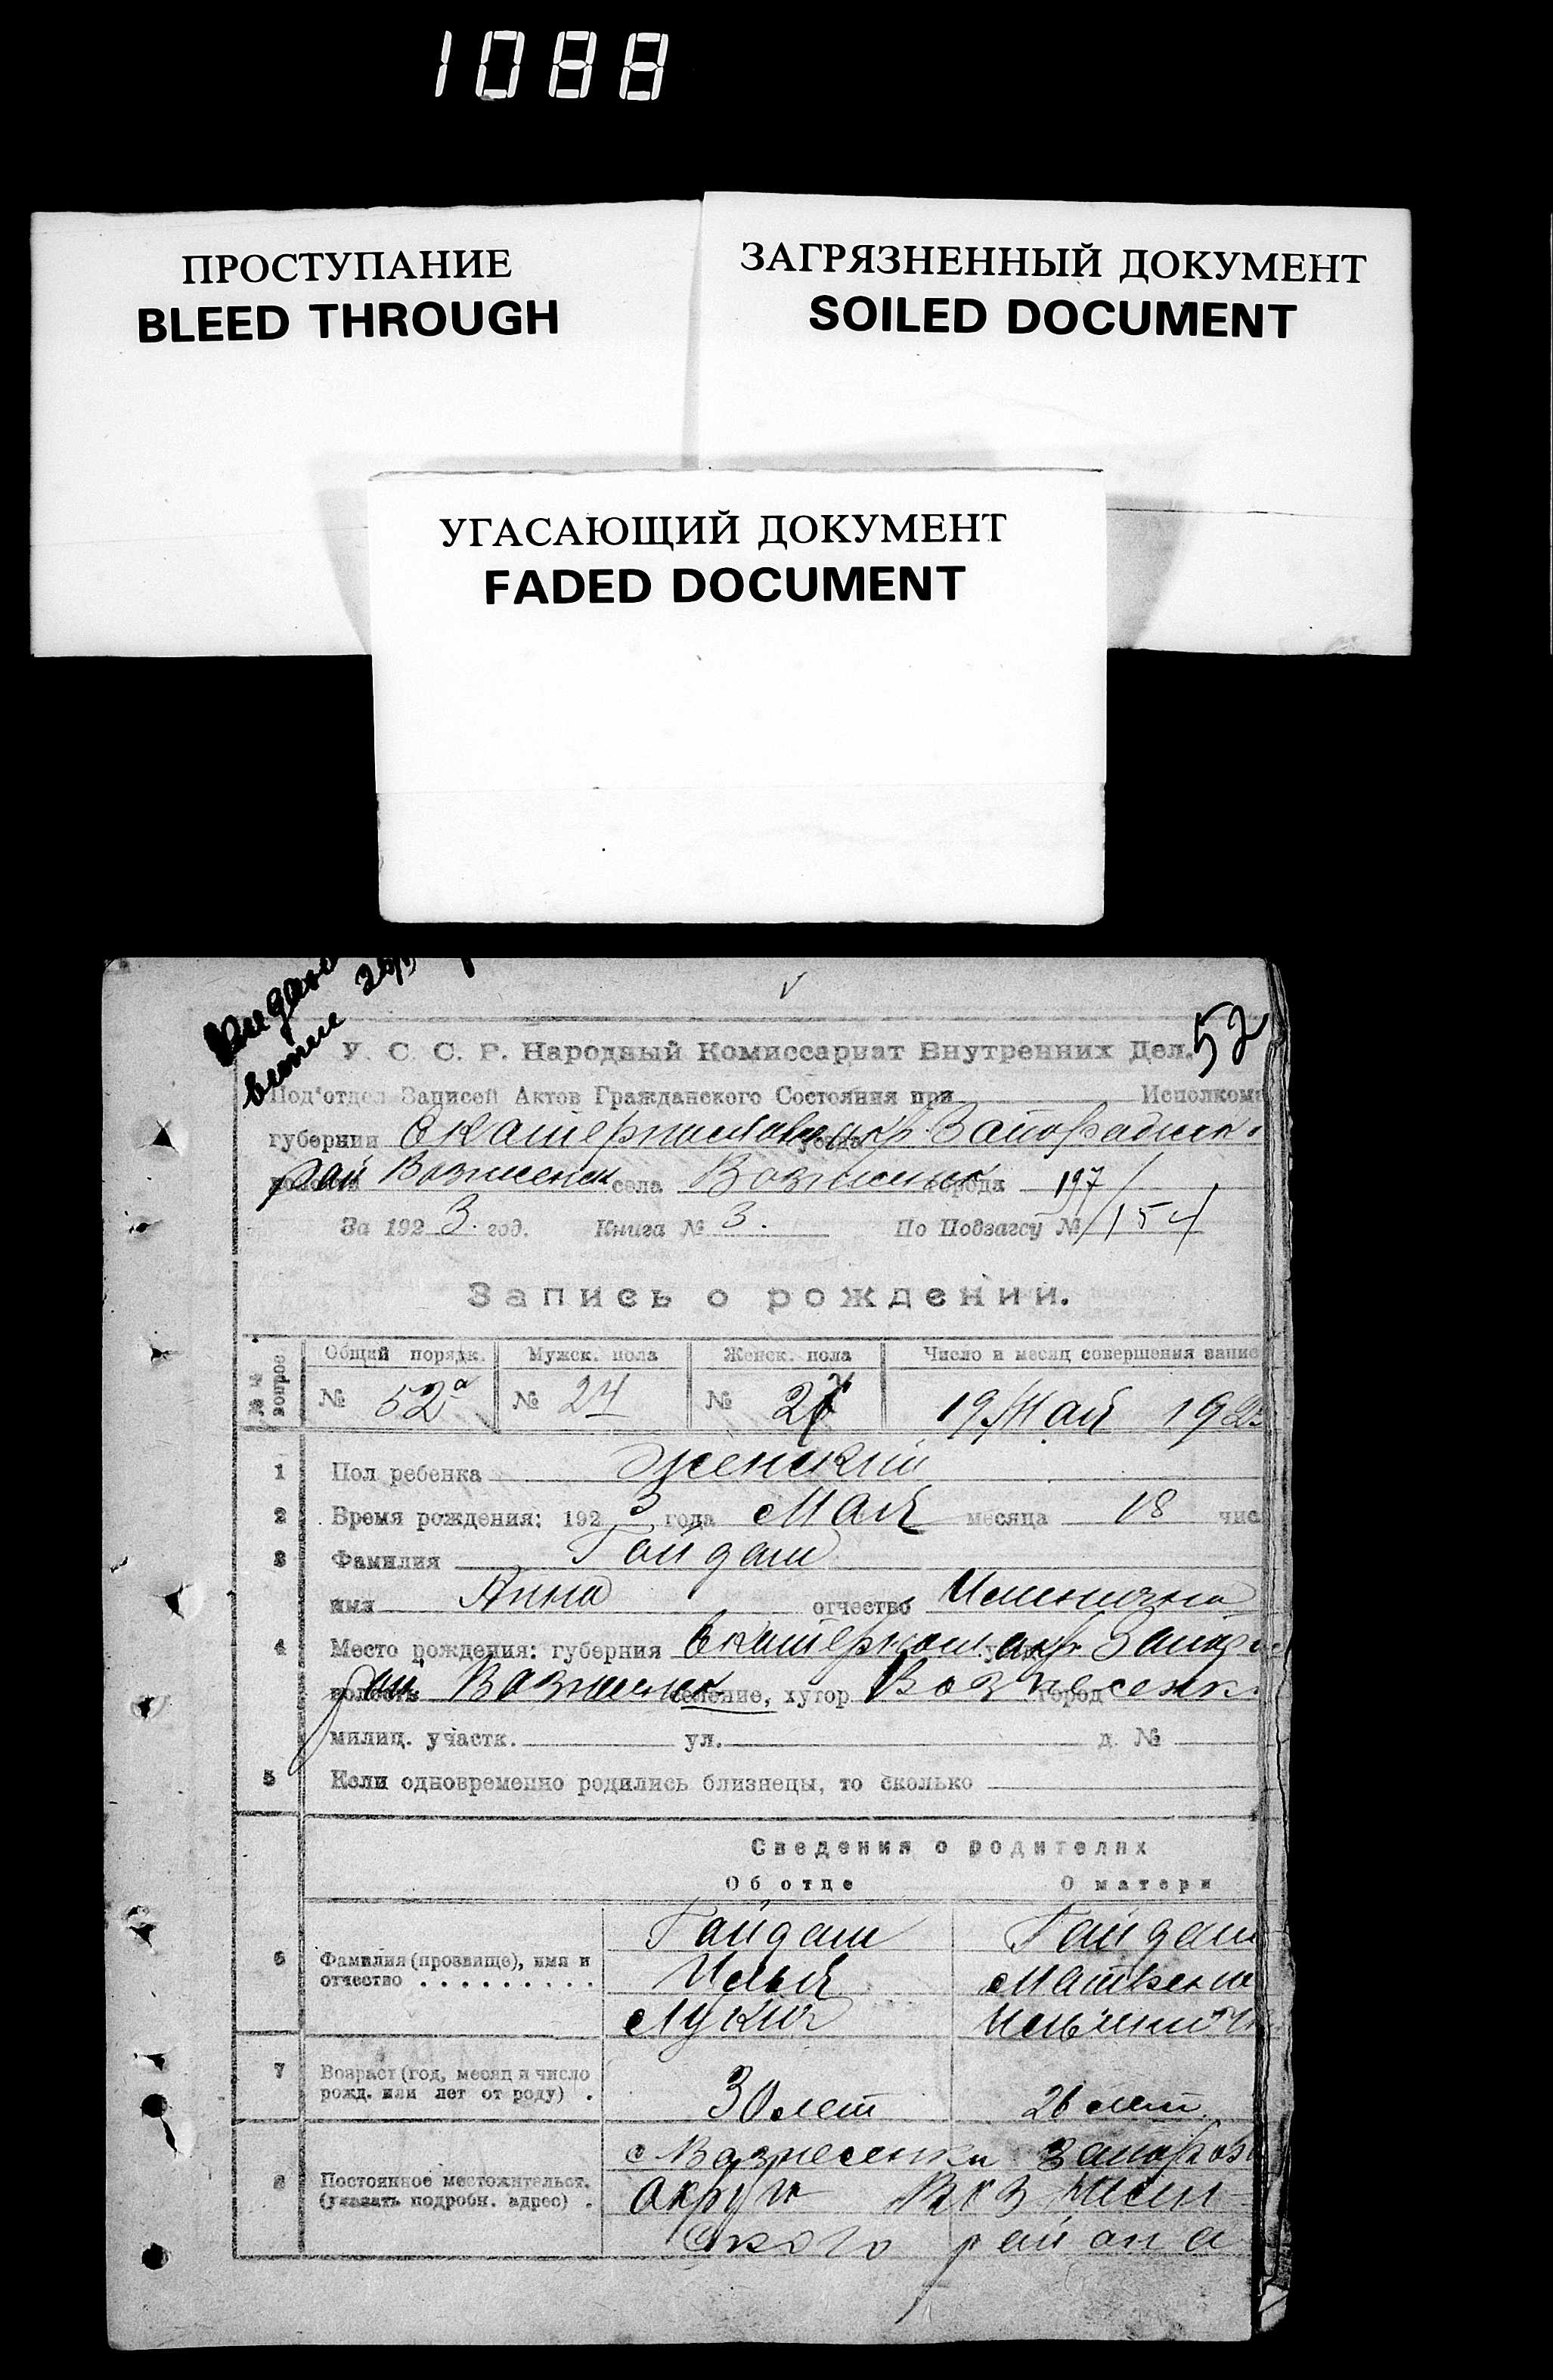 1088
ПРОСТУПАНИЕ
BLEED THROUGH
ЗАГРЯЗНЕННЫЙ ДОКУМЕНТ
SOILED DOCUMENT
УГАСАЮЩИЙ ДОКУМЕНТ
FADED DOCUMENT
52
У. С. С. Р. Народный Комиссариат Внутренних Дел.
Под'отдел Записей Актов Гражданского Состояния при Исполкома
губернии Екатеринославск окр.
рай Вознесенск села Вознесенск города 197/
За 1923. год. Книга № 3. По Подзагсу № 154
Запись о рождении.
№№ вопрос. Общий порядк. Мужск. пола Женск. пола Число и месяц совершения запис
№ 52а № 24 № 19 Мая 192
1 Пол ребенка Женский
2 Время рождения: 1923 года Мая месяца 18 чис
3 Фамилия Гайдаш
имя Анна отчество Ильинична
4 Место рождения: губерния Екатериносл. окр. Запор
рай. Вознесенск селение, хутор Вознесенк город
милиц. участк. ул. д. №
5 Если одновременно родились близнецы, то сколько
Сведения о родителях
Об отце О матери
6 Фамилия (прозвище), имя и отчество . . . . . . . . . .
Гайдаш Гайдаш
Илья Матвеена
Лукич Ильинична
7 Возраст (год, месяц и число рожд. или лет от роду) .
30 лет 26 лет.
8 Постоянное местожительст. (указать подробн. адрес) .
с Вознесенка Запорож
округа Вознесен-
ского района